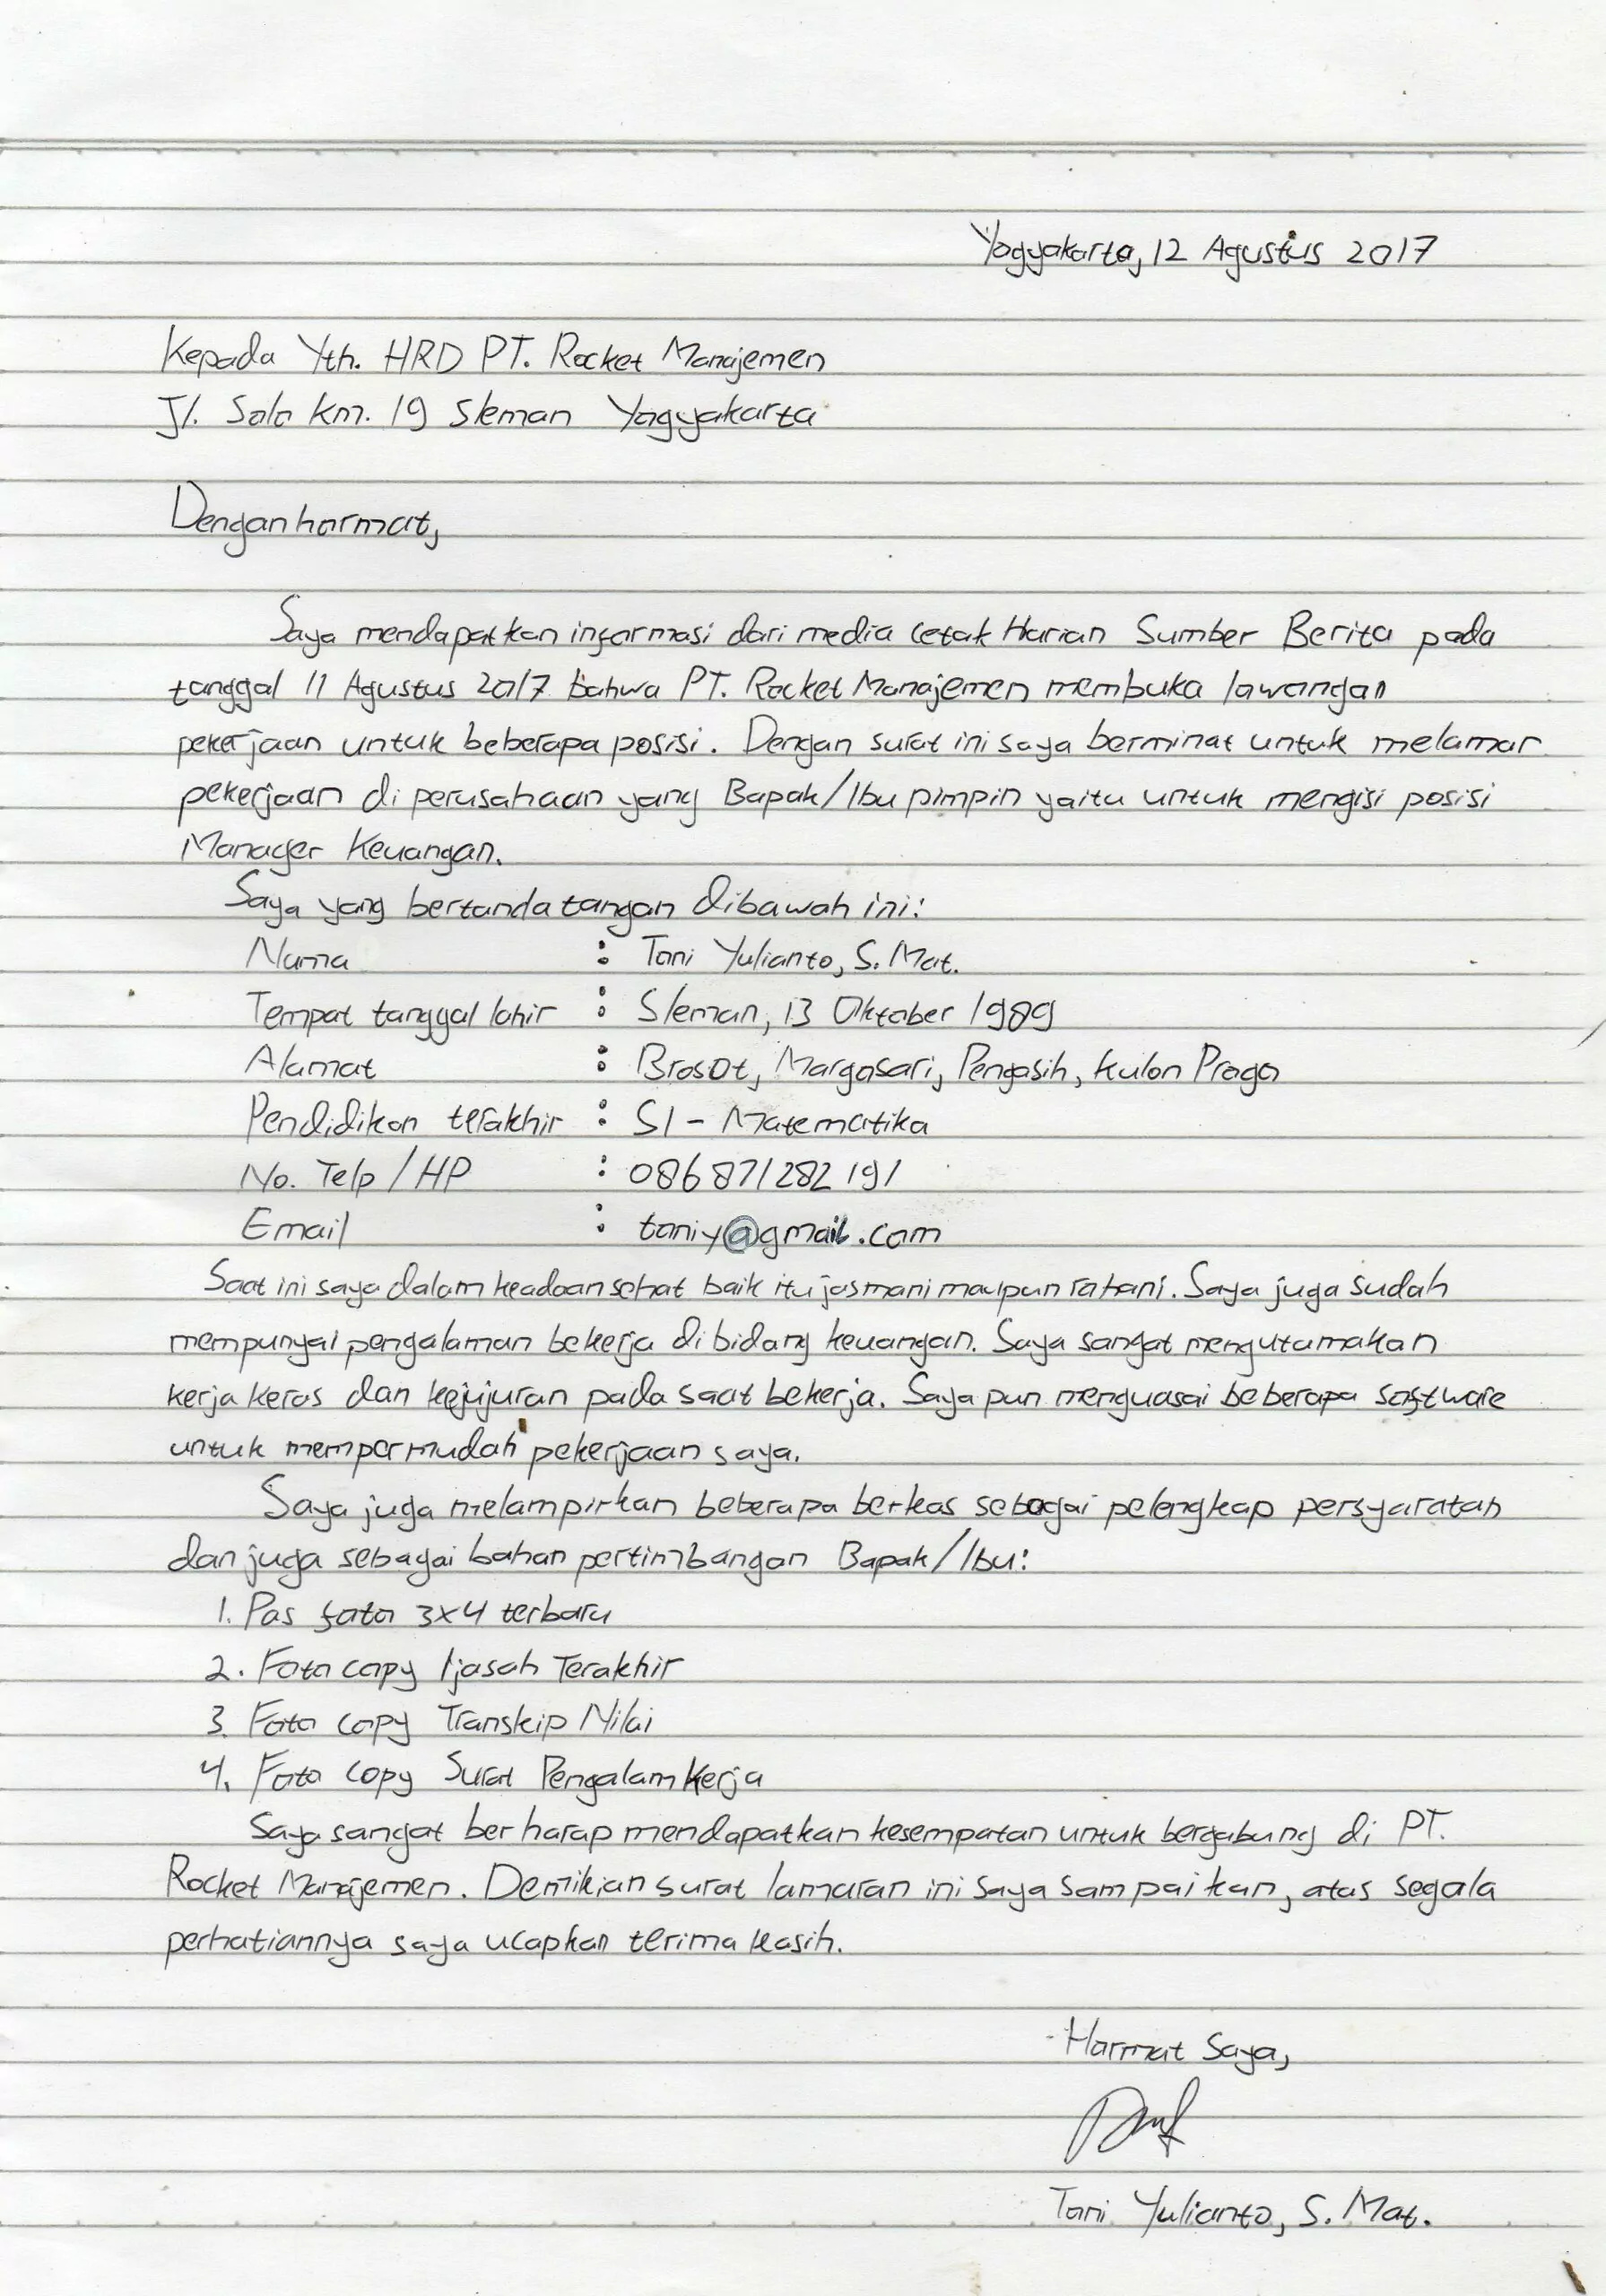 Yogyakarta, 12 Agustus 2017
Kepada Yth. HRD PT. Rocket Manajemen
Jl. Solo Km. 19 Sleman Yogyakarta
Dengan hormat,
Saya mendapatkan informasi dari media cetak Harian Sumber Berita pada
tanggal 11 Agustus 2017 bahwa PT. Rocket Manajemen membuka lowongan
pekerjaan untuk beberapa posisi. Dengan surat ini saya berminat untuk melamar
pekerjaan di perusahaan yang Bapak/Ibu pimpin yaitu untuk mengisi posisi
Manager Keuangan.
Saya yang bertanda tangan dibawah ini:
Nama : Toni Yulianto, S. Mat.
Tempat tanggal lahir : Sleman, 13 Oktober 1989
Alamat : Brosot, Margosari, Pengasih, Kulon Progo
Pendidikan terakhir : S1 - Matematika
No. Telp / HP : 086 871 282 191
Email : toniy@gmail.com
Saat ini saya dalam keadaan sehat baik itu jasmani maupun rohani. Saya juga sudah
mempunyai pengalaman bekerja di bidang keuangan. Saya sangat mengutamakan
kerja keras dan kejujuran pada saat bekerja. Saya pun menguasai beberapa software
untuk mempermudah pekerjaan saya.
Saya juga melampirkan beberapa berkas sebagai pelengkap persyaratan
dan juga sebagai bahan pertimbangan Bapak/Ibu:
1. Pas foto 3x4 terbaru
2. Foto copy Ijasah Terakhir
3. Foto copy Transkip Nilai
4. Foto copy Surat Pengalam Kerja
Saya sangat berharap mendapatkan kesempatan untuk bergabung di PT.
Rocket Manajemen. Demikian surat lamaran ini saya sampaikan, atas segala
perhatiannya saya ucapkan terima kasih.
Hormat Saya,
Toni Yulianto, S. Mat.